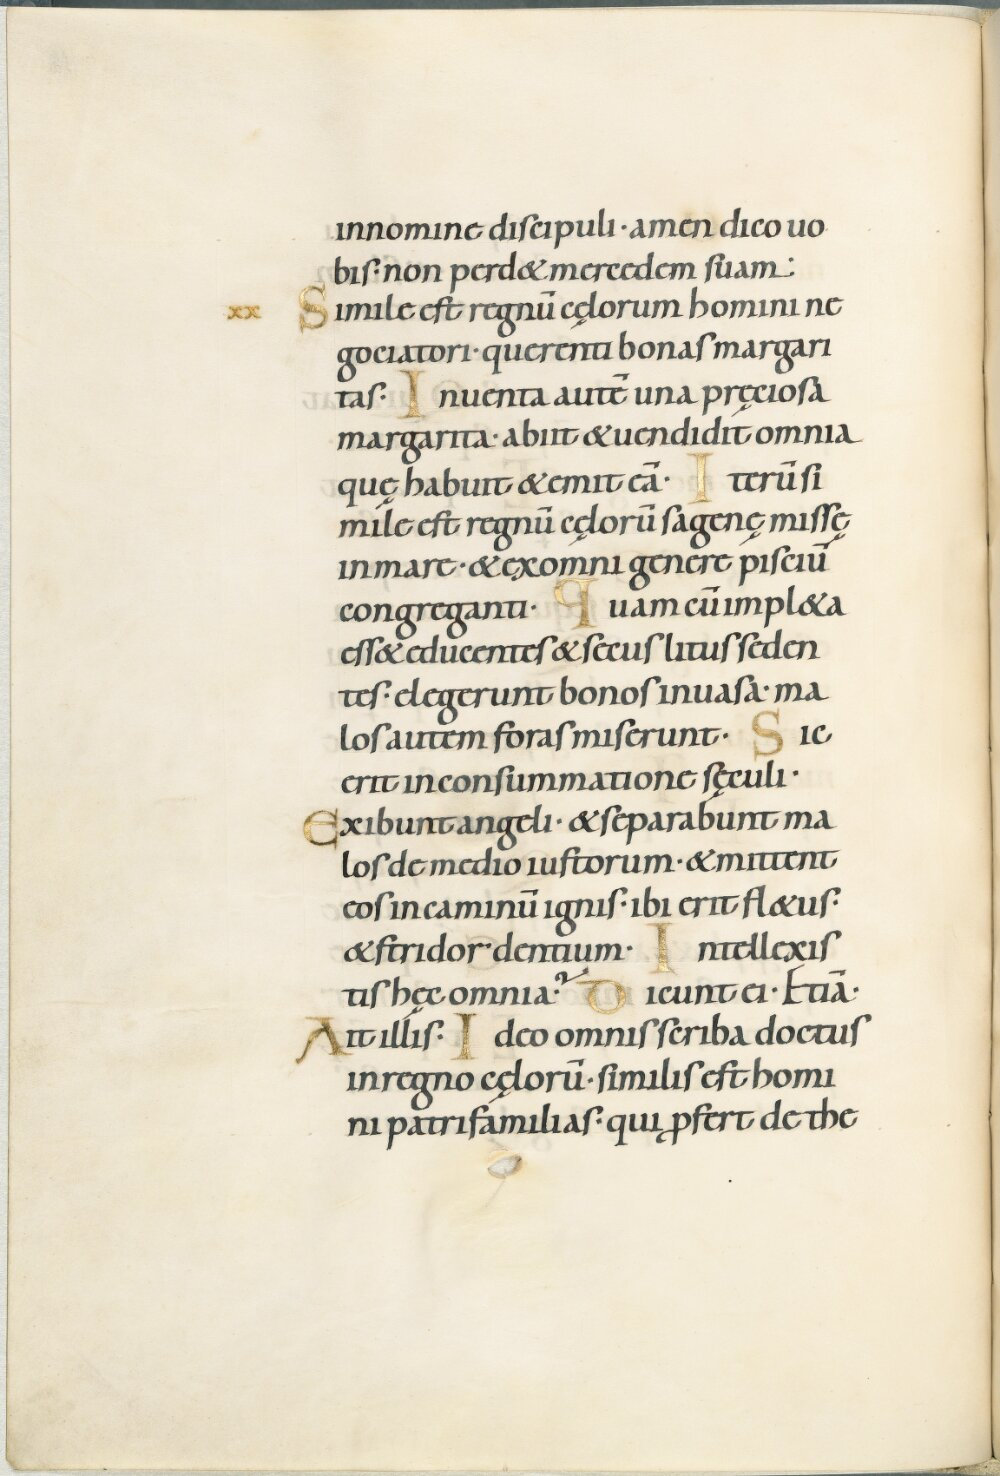 innomine discipuli · amen dico uo
bis: non perd& mercedem suam:
xx Simile est regnū cęlorum homini ne
gociatori · querenti bonas margari
tas · Inuenta autē una pręciosa
margarita · abiit & uendidit omnia
quę habuit & emit eā · Iterū si
mile est regnū cęlorū sagenę missę
inmare · & exomni genere pisciū
congreganti · Quam cū impl&a
ess& educentes & secus litus seden
tes · elegerunt bonos inuasa · ma
los autem foras miserunt · Sic
erit inconsummatione sęculi ·
Exibunt angeli · & separabunt ma
los de medio iustorum · & mittent
eos incaminū ignis · ibi erit fl&us ·
& stridor dentium · Intellexis
tis hęc omnia? Dicunt ei · Etiā ·
Ait illis · Ideo omnis scriba doctus
inregno cęlorū · similis est homi
ni patrifamilias · qui ꝓfert de the